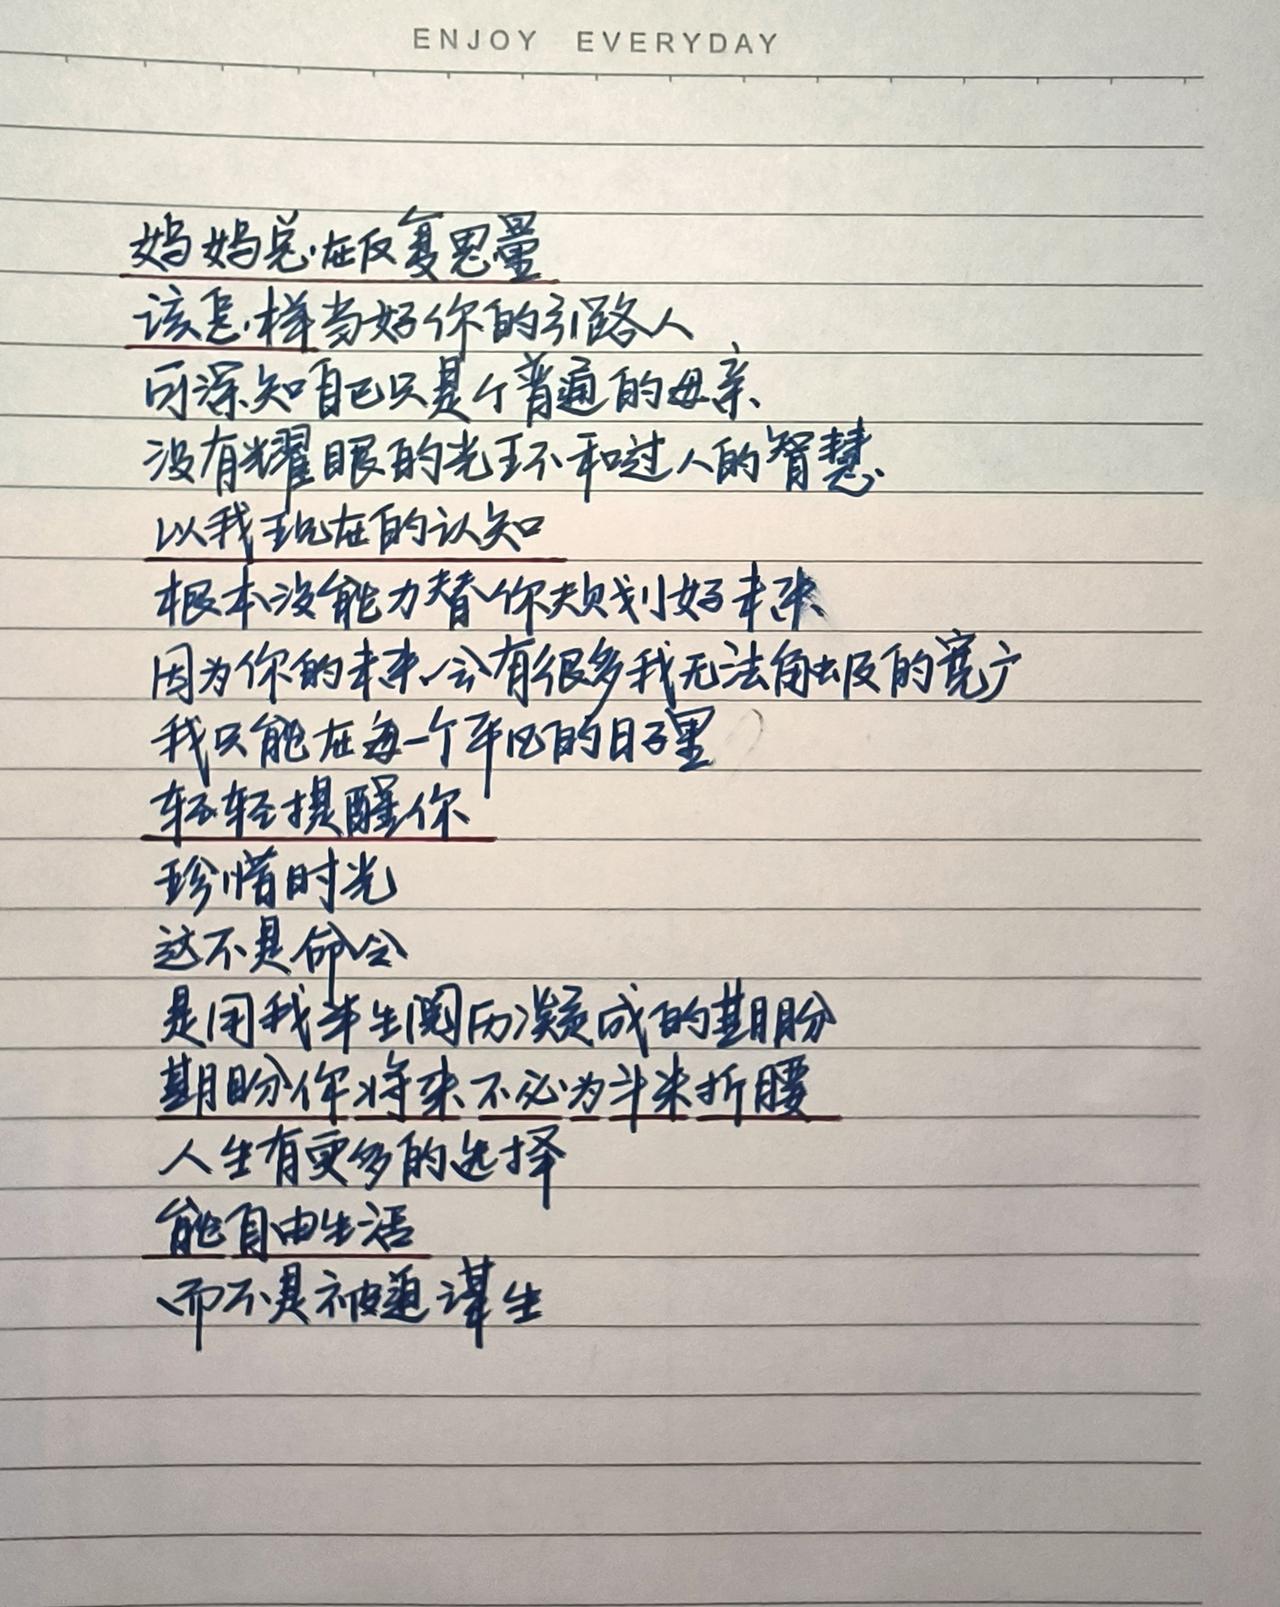 ENJOY EVERYDAY
妈妈总在反复思量
该怎样当好你的引路人
可深知自己只是个普通的母亲
没有耀眼的光环和过人的智慧
以我现在的认知
根本没能力替你规划好未来
因为你的未来会有很多我无法触及的宽广
我只能在每一个平凡的日子里
轻轻提醒你
珍惜时光
这不是命令
是用我半生阅历凝成的期盼
期盼你将来不必为斗米折腰
人生有更多的选择
能自由生活
而不是被迫谋生